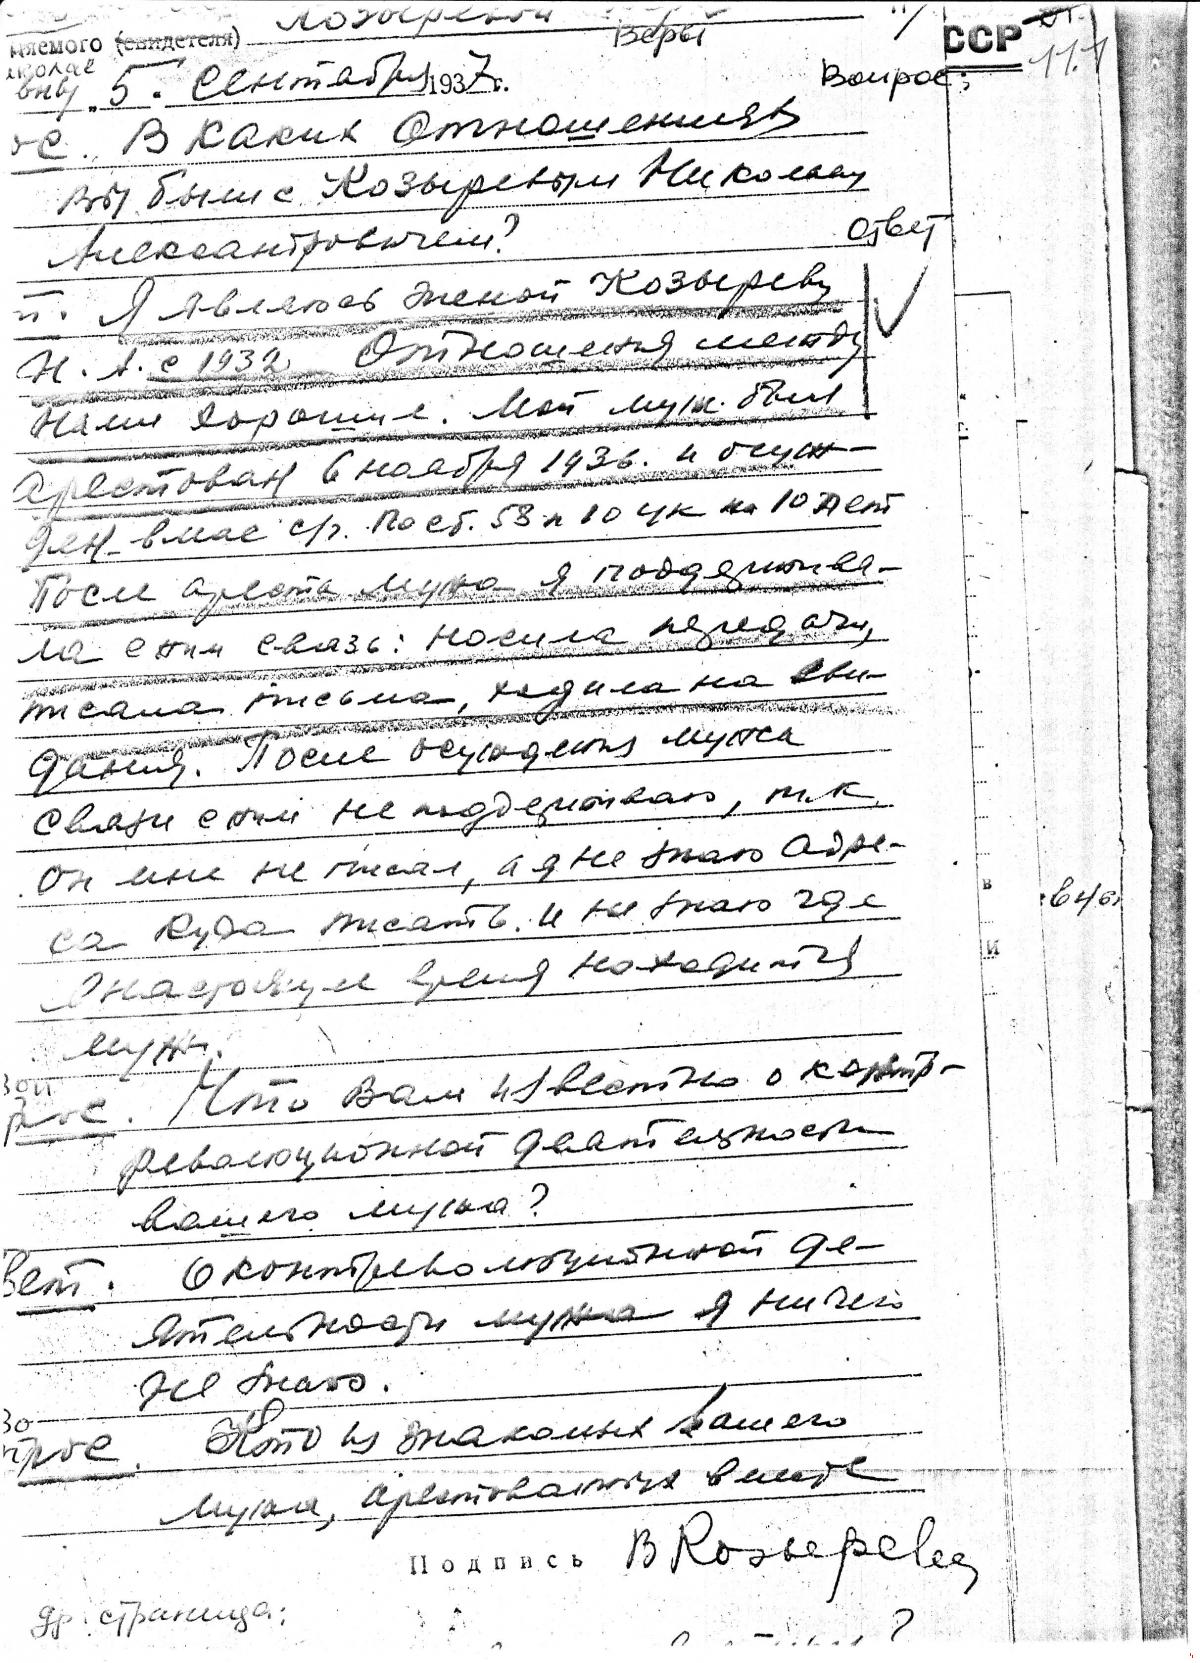 Козыревой Веры
няемого (свидетеля)
СССР
Вопрос:
„5. Сентября 1937 г.
ос. В каких отношениях
Вы были с Козыревым Николаем
Александровичем?
ответ
Я являюсь женой Козырева
Н. А. с 1932 Отношения между
нами хорошие. Мой муж был
арестован 6 ноября 1936. и осуж-
ден в мае с/г. по ст. 58 п 10 УК на 10 лет
После ареста мужа я поддержива-
ла с ним связь: носила передачи,
писала письма, ходила на сви-
дания. После осуждения мужа
связи с ним не поддерживаю, т.к.
он мне не писал, а я не знаю адре-
са куда писать. и не знаю где
в настоящее время находится
муж.
Воп
рос. Что Вам известно о контр-
революционной деятельности
вашего мужа?
вет. О контрреволюционной де-
ятельности мужа я ничего
не знаю.
Во
прос. Кто из знакомых вашего
мужа, арестованных вместе
Подпись В Козырева
др. страница: